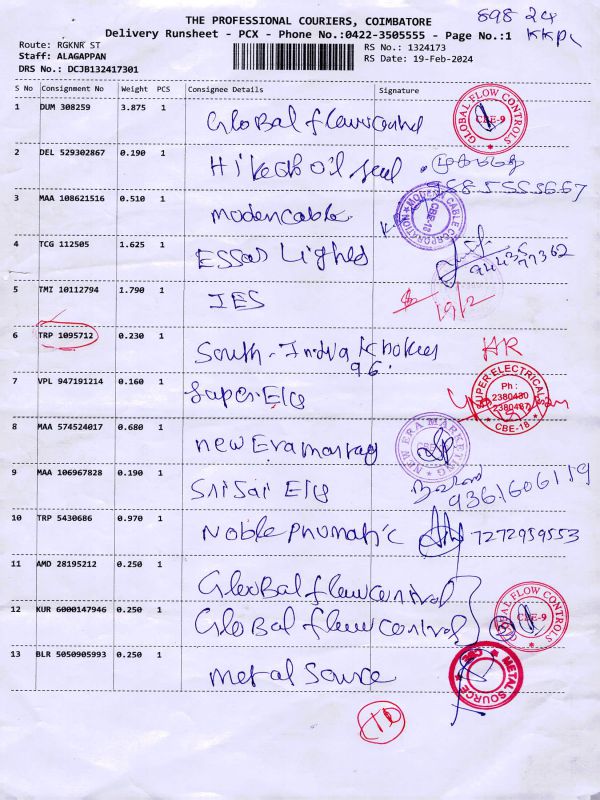 THE PROFESSIONAL COURIERS, COIMBATORE
898 24
Delivery Runsheet - PCX - Phone No.:0422-3505555 - Page No.:1
Route: RGKNR ST
RS No.: 1324173
Staff: ALAGAPPAN
RS Date: 19-Feb-2024
DRS No.: DCJB132417301
S No Consignment No Weight PCS Consignee Details Signature
1 DUM 308259 3.875 1 Global flow control
GLOBAL-FLOW CONTROLS CBE-9
2 DEL 529302867 0.190 1 Hikeob oil seal
3 MAA 108621516 0.510 1 modencable
MODERN CABLE CORPORATION CBE-12
4 TCG 112505 1.625 1 ESSar Lighed
5 TMI 10112794 1.790 1 JES 19/2
6 TRP 1095712 0.230 1 South-India
96.
7 VPL 947191214 0.160 1 SuperElc
SUPER ELECTRICALS Ph : 2380430 2380487 CBE-18
8 MAA 574524017 0.680 1 new Era
NEW ERA MARKETING
9 MAA 106967828 0.190 1 Sri Sai Elc
9361606119
10 TRP 5430686 0.970 1 Noble Pnumatic 7272959553
11 AMD 28195212 0.250 1 Global flow control
12 KUR 6000147946 0.250 1 Global flow control
GLOBAL-FLOW CONTROLS CBE-9
13 BLR 5050905993 0.250 1 metal source
METAL SOURCE CBE